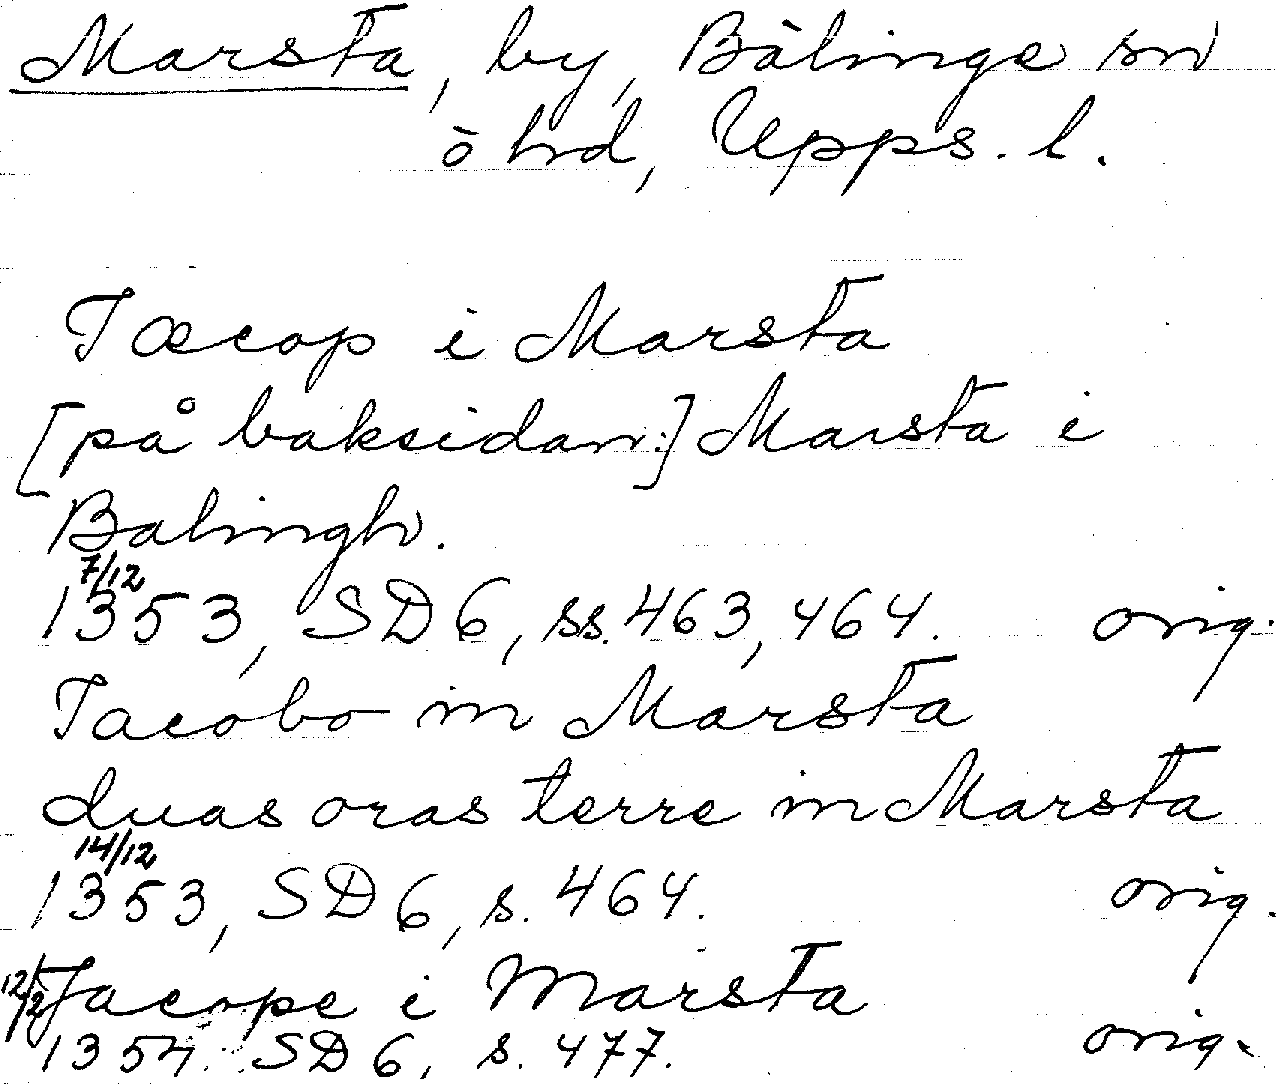 Marsta, by, Bälinge sn
o hd, Upps. l.
Iæcop i Marsta
[på baksidan:] Marsta i
Balingh.
7/12
1353, SD 6, ss. 463, 464. orig.
Iacobo in Marsta
duas oras terre in Marsta
14/12
1353, SD 6, s. 464. orig.
12/12 Jacope i Marsta
1354. SD 6, s. 477. orig.